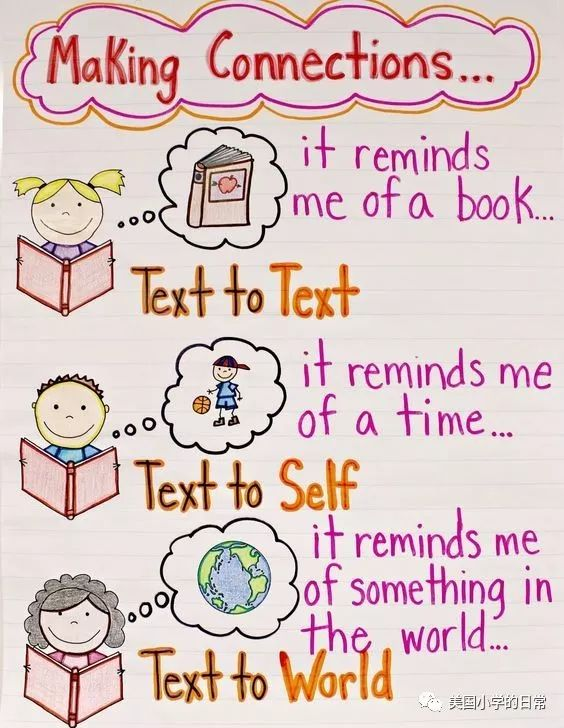 Making Connections...
it reminds
me of a book...
Text to Text
it reminds me
of a time...
Text to Self
it reminds me
of something in
the world...
Text to World
美国小学的日常